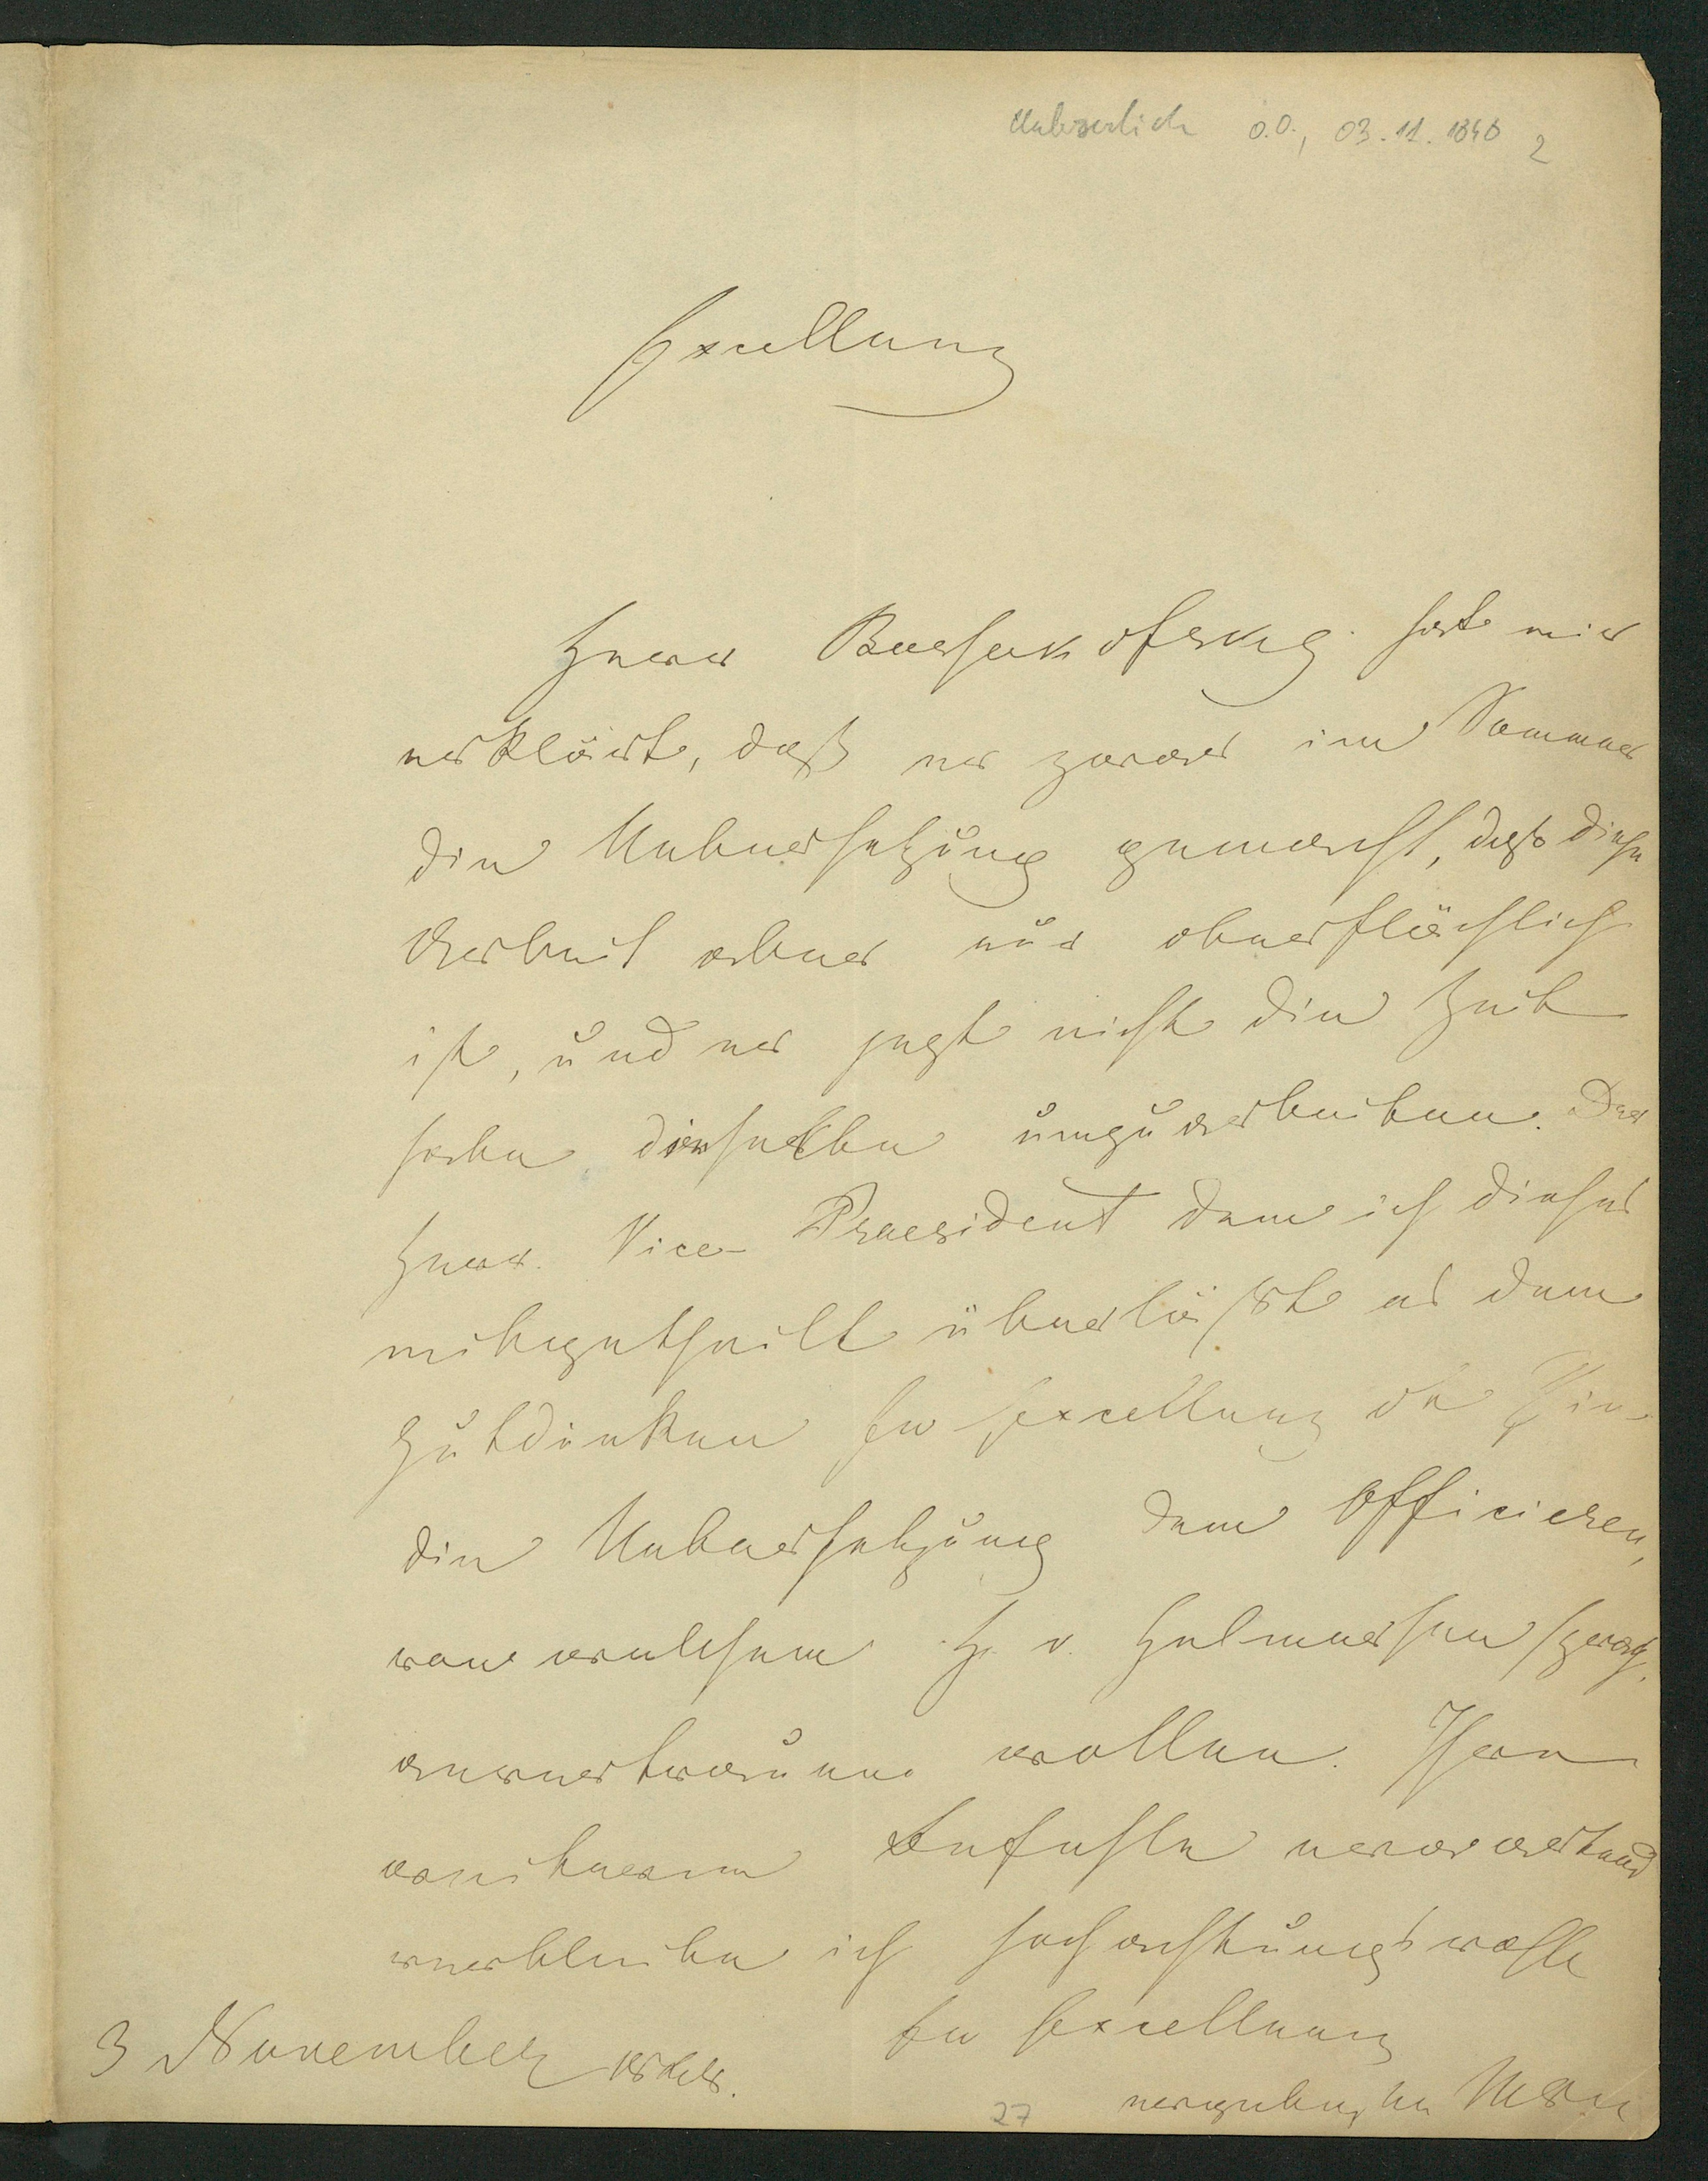 Unleserlich o.O., 03.11.1848 2
Excellenz
Herr hat mir
erklärt, daß er zwar im Sommer
die Uebersetzung gemacht, daß diese
Arbeit aber nur oberflächlich
ist, und er jetzt nicht die Zeit
habe dieselbe umzuarbeiten. Der
Herr Vice-Praesident dem ich dieses
mitgetheilt überläßt es dem
Gutdünken Ew Excellenz ob Sie
die Uebersetzung dem Officieren,
von welchem H. v. Helmersen sprach,
anvertrauen wollen. Ihre
weiteren Befehle erwartend
verbleibe ich hochachtungsvoll
Ew Excellenz
3 November
ergebenster
27